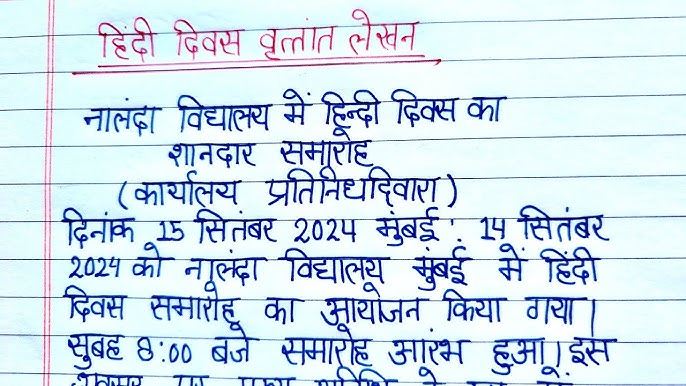 हिंदी दिवस वृत्तांत लेखन
नालंदा विद्यालय में हिन्दी दिवस का
शानदार समारोह
(कार्यालय प्रतिनिधिद्वारा)
दिनांक 15 सितंबर 2024 मुंबई : 14 सितंबर
2024 को नालंदा विद्यालय मुंबई में हिंदी
दिवस समारोह का आयोजन किया गया।
सुबह 8:00 बजे समारोह आरंभ हुआ। इस